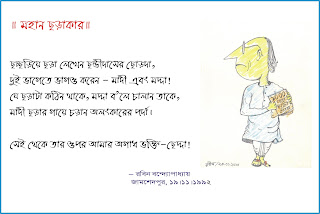 ॥ মহান ছড়াকার॥
হুড়হুড়িয়ে ছড়া লেখেন চন্ডীদাসের ছোড়দা,
দুই ভাগেতে ভাগও করেন - মাদী এবং মদ্দা!
যে ছড়াটা কঠিন থাকে, মদ্দা ব'লে চালান তাকে,
মাদী ছড়ার গায়ে চড়ান অলংকারের পর্দা।
সেই থেকে তার ওপর আমার অগাধ ভক্তি-ছেদ্দা!
- রবিন বন্দ্যোপাধ্যায়
জামশেদপুর, ১৯।১১।১৯৯২